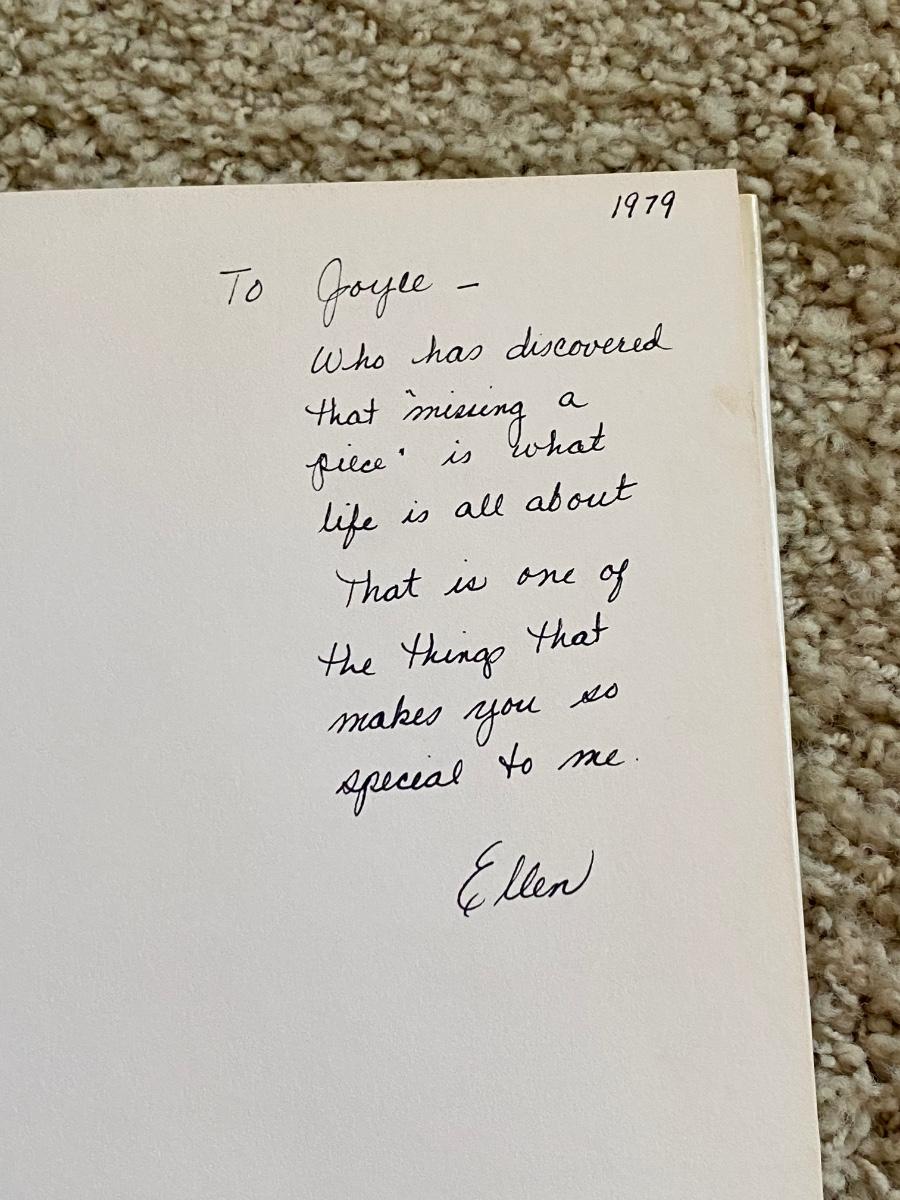 1979
To Joyce -
Who has discovered
that "missing a
piece" is what
life is all about
That is one of
the things that
makes you so
special to me.
Ellen